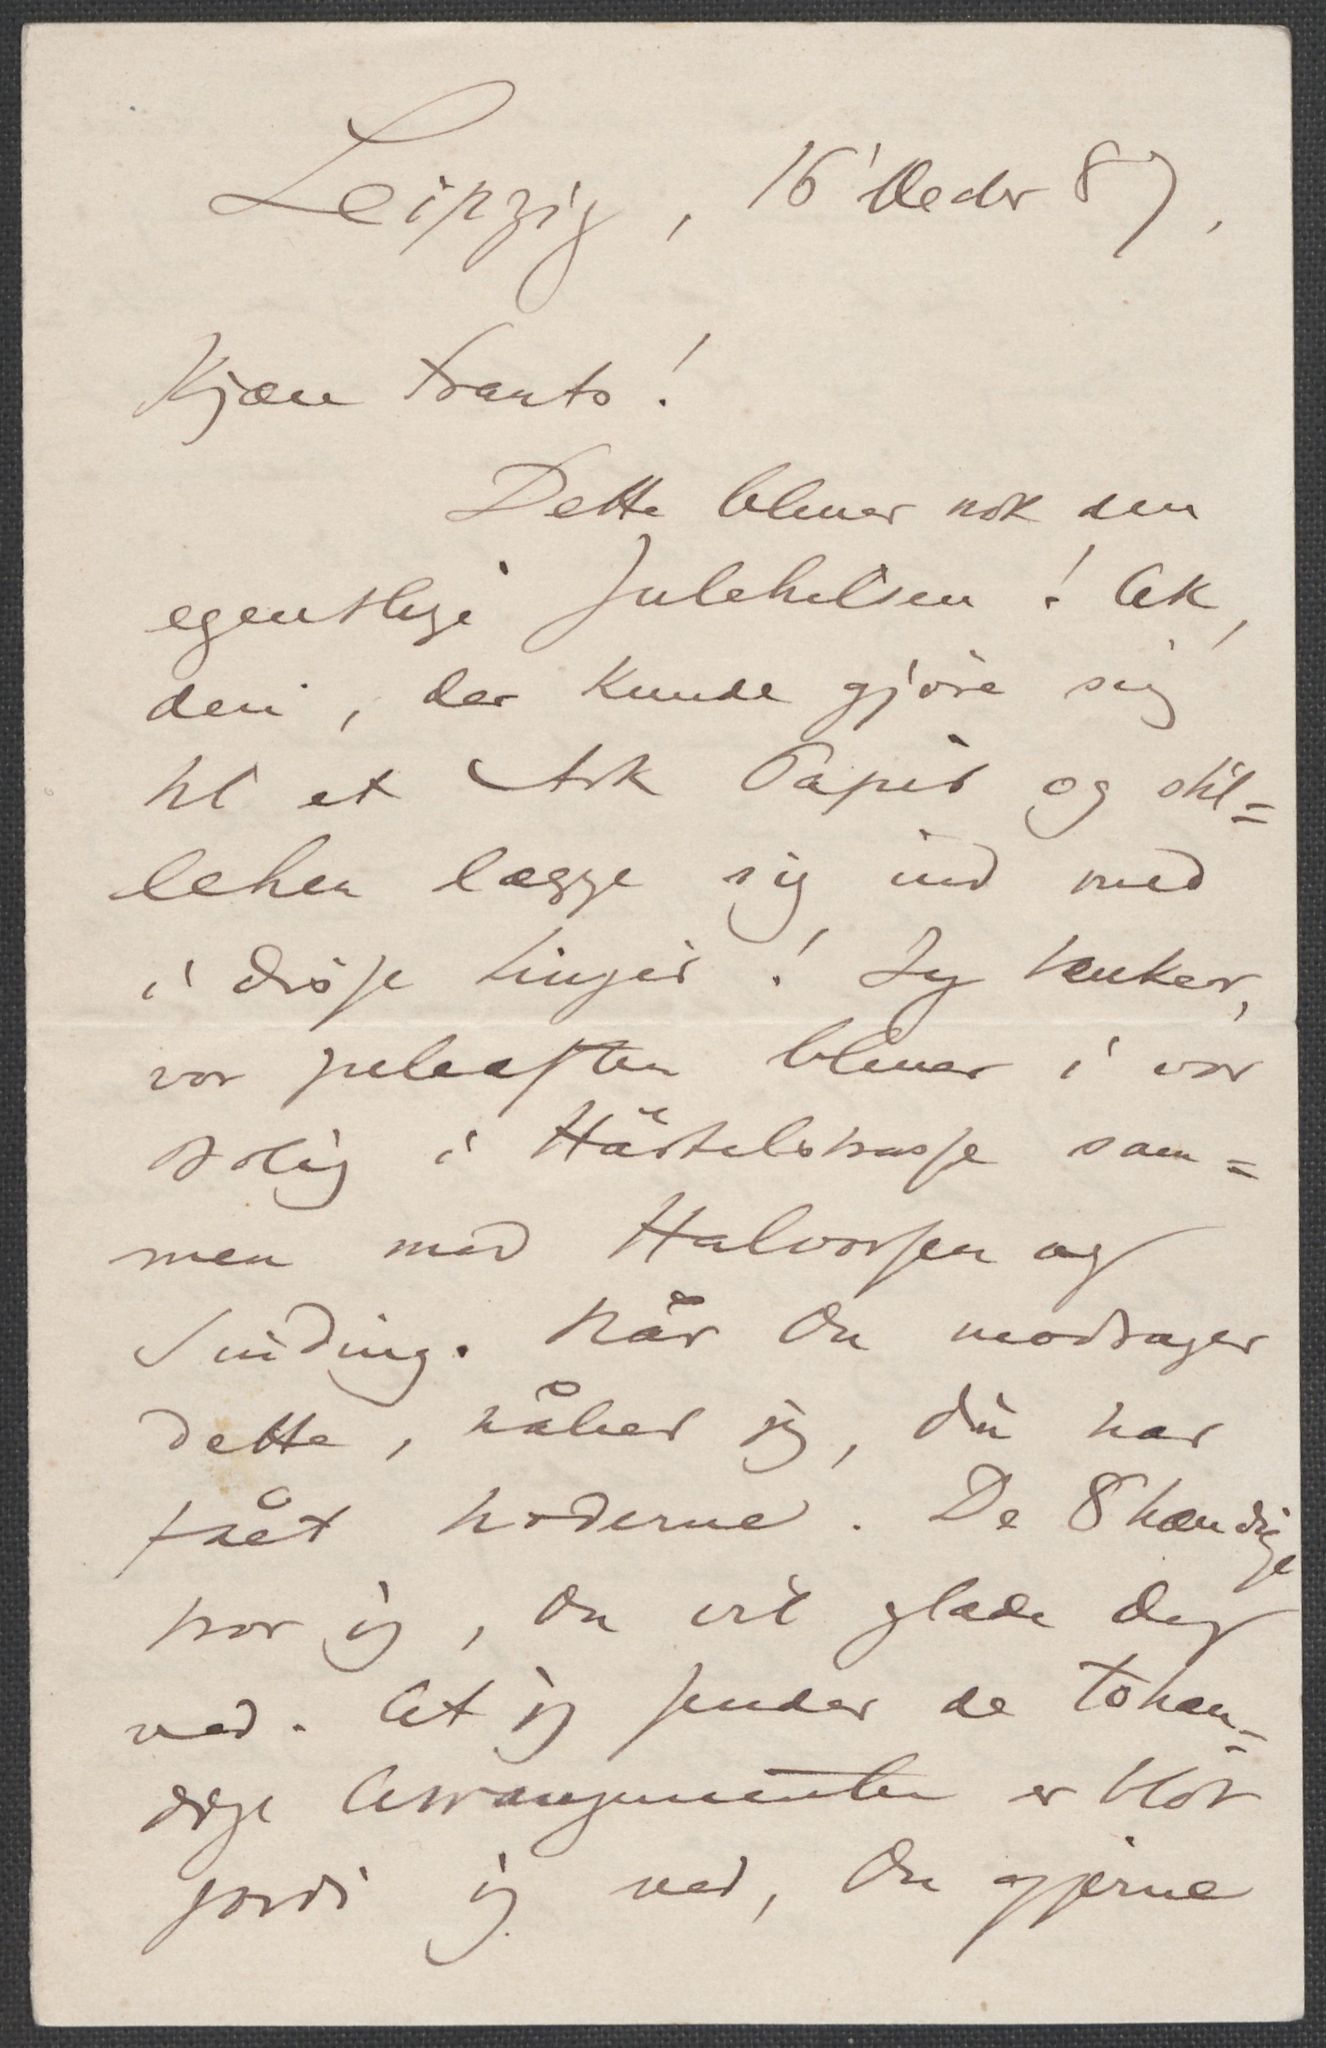 Leipzig, 16' Decbr 87.
Kjære Frants!
Dette bliver nok den
egentlige Julehilsen! Ak,
den, der kunde gjøre sig
til et Ark Papir og stil=
lehen lægge sig ind med
i disse Linjer! Jeg tænker,
vor juleaften bliver i vor
Bolig i Härtelstrasse sam=
men med Halvorsen og
Sinding. Når Du modtager
dette, håber jeg, du har
fået Noderne. De 8hændige
tror jeg, Du vil glæde Dig
ved. At jeg sender de tohæn=
dige Arrangementer er blot
fordi jeg ved, Du gjerne